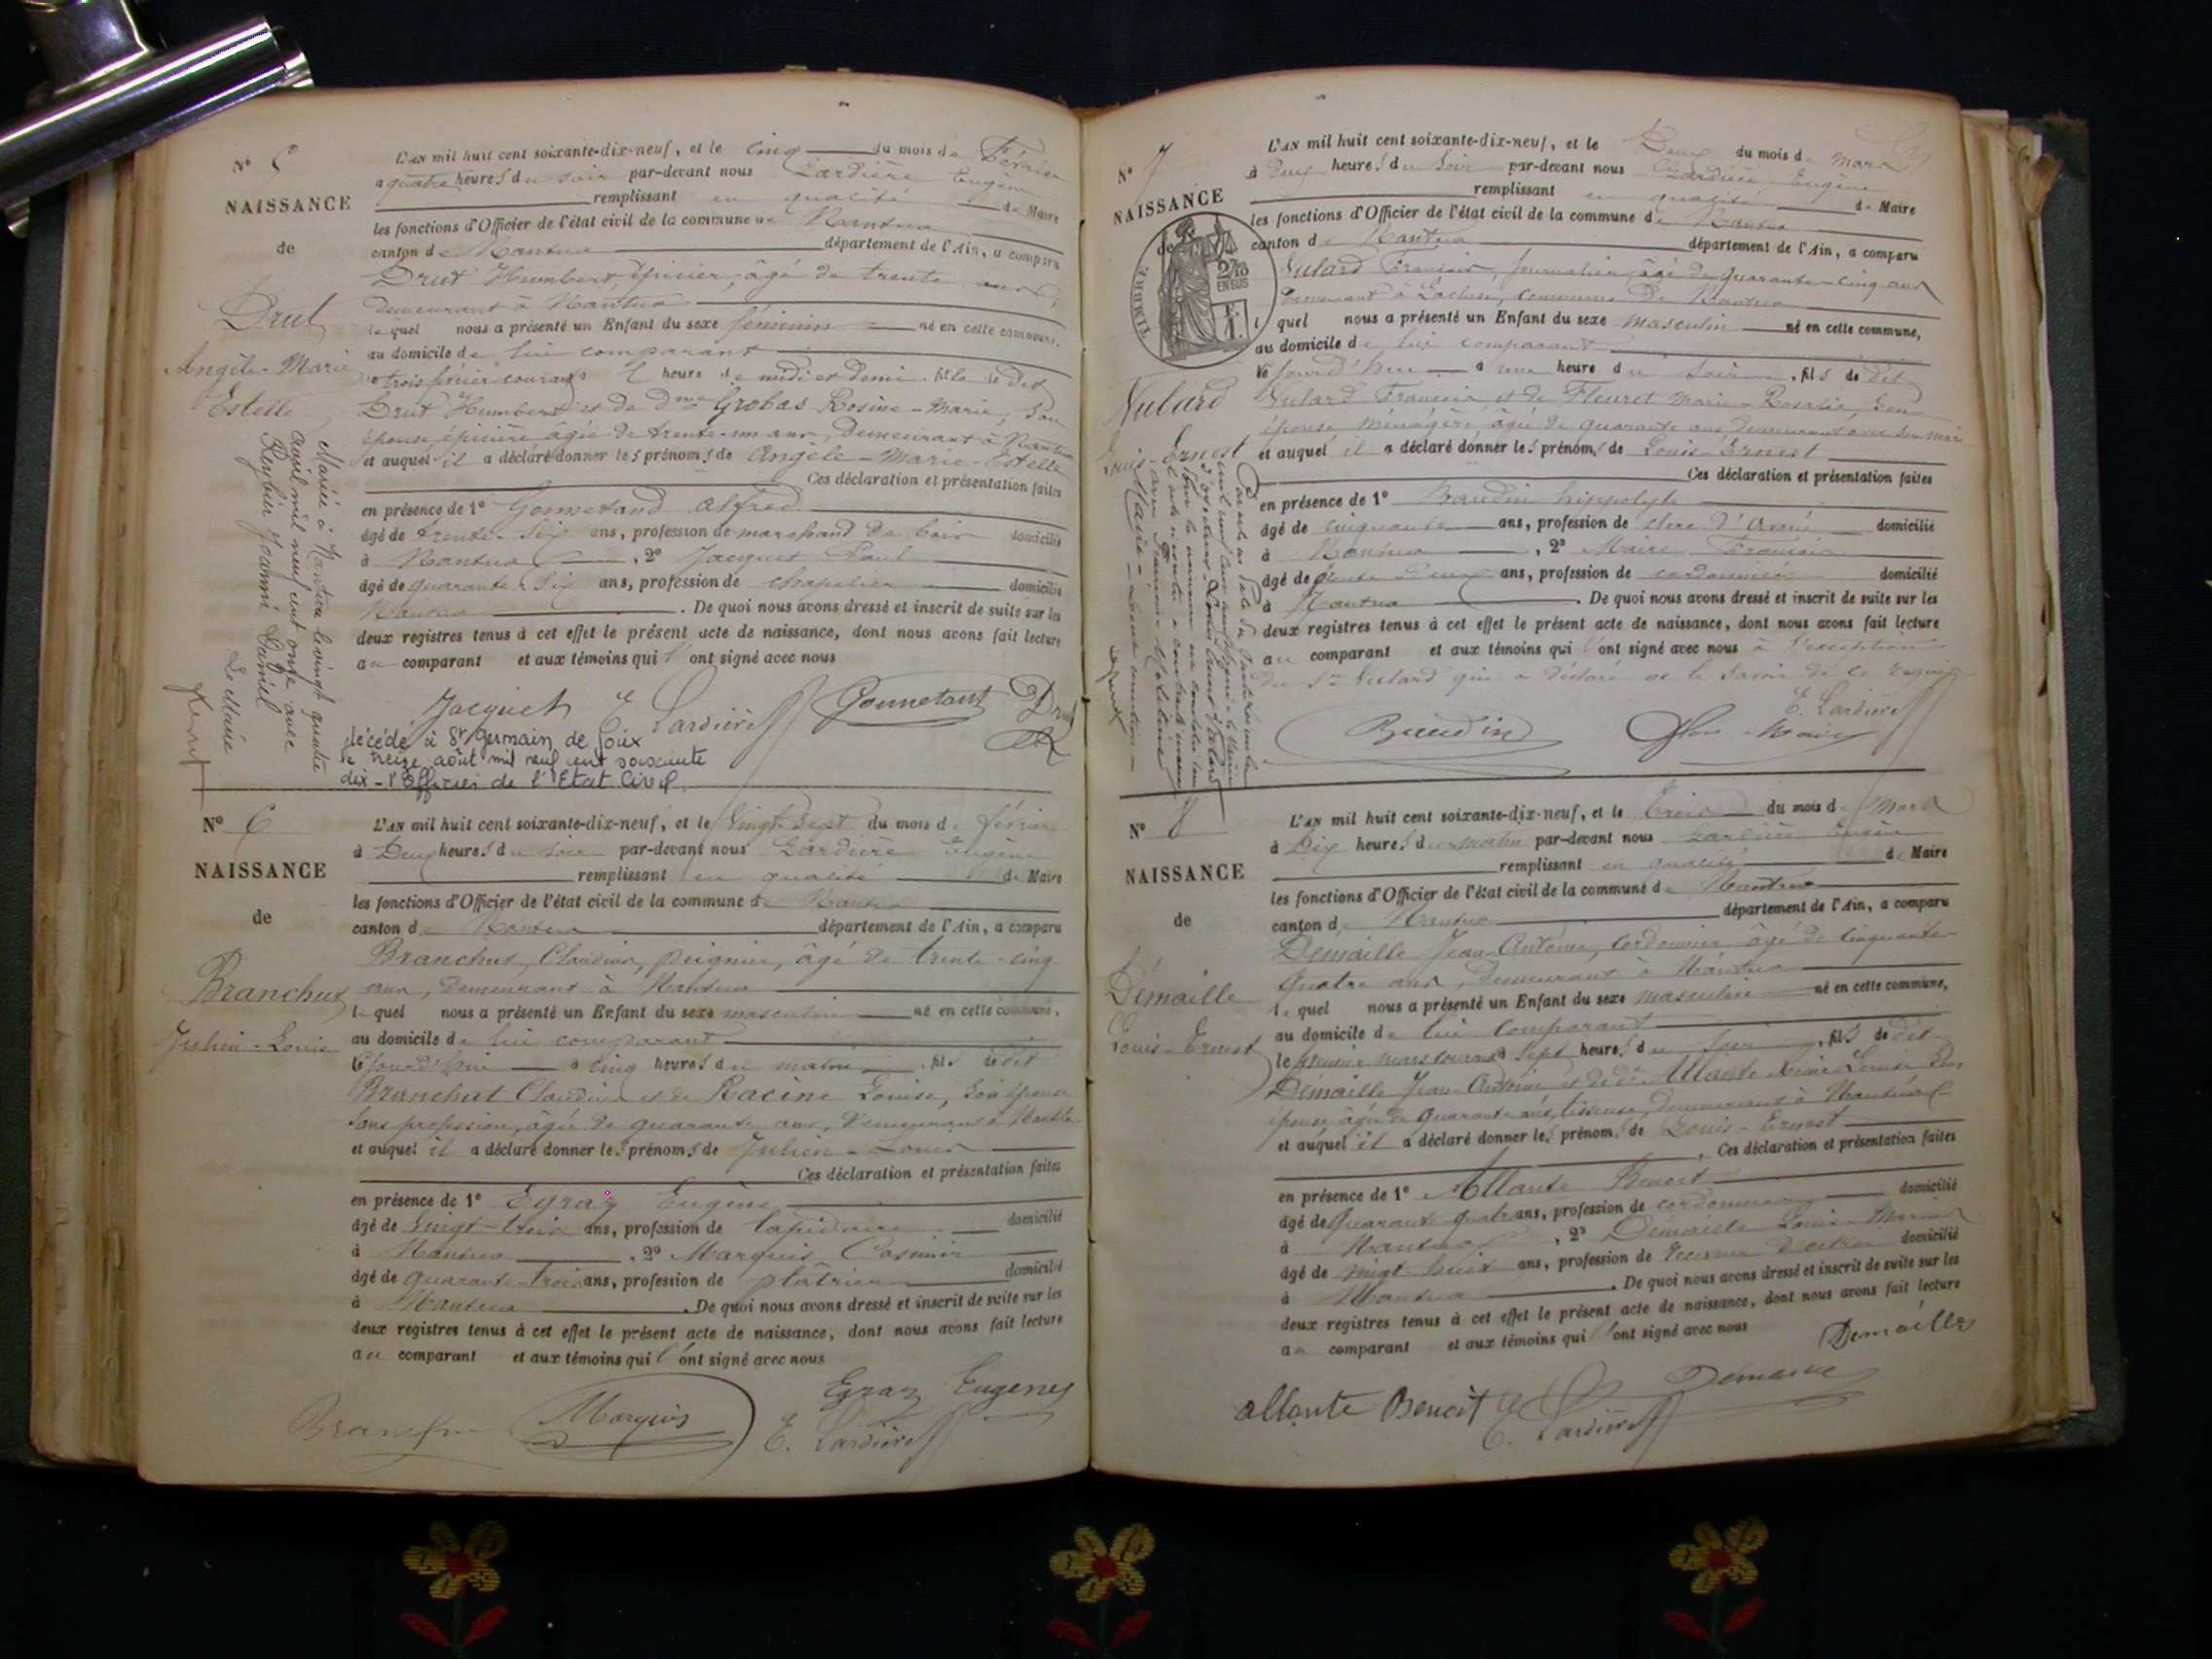 N° 5
NAISSANCE
de
Drut
Angèle-Marie
Estelle
Mariée à Nantua le vingt quatre
avril mil neuf cent onze avec
Reybier Joanni Daniel
Le Maire
L'AN mil huit cent soixante-dix-neuf, et le cinq du mois de Février
à quatre heures du soir par-devant nous Lardière Eugène
remplissant en qualité de Maire
les fonctions d'Officier de l'état civil de la commune de Nantua
canton de Nantua département de l'Ain, a comparu
Drut Humbert, épicier, âgé de trente ans,
demeurant à Nantua
le quel nous a présenté un Enfant du sexe féminin né en cette commune,
au domicile de lui comparant
le trois février courant à heure de midi et demi fille de dit
Drut Humbert et de dme Grobas Rosine-Marie, son
épouse, épicière âgée de trente-un ans, demeurant à Nantua
et auquel il a déclaré donner les prénoms de Angèle-Marie-Estelle
Ces déclaration et présentation faites
en présence de 1° Gonnetand Alfred
âgé de trente-six ans, profession de marchand de bois domicilié
à Nantua, 2° Jacquet Paul
âgé de quarante-six ans, profession de chapelier domicilié
Nantua. De quoi nous avons dressé et inscrit de suite sur les
deux registres tenus à cet effet le présent acte de naissance, dont nous avons fait lecture
au comparant et aux témoins qui l'ont signé avec nous
Jacquet E. Lardière Gonnetant Drut
décédé à St Germain de Joux
le treize août mil neuf cent soixante
dix - l'Officier de l'Etat Civil.
N° 6
NAISSANCE
de
Branchut
Julien-Louis
L'AN mil huit cent soixante-dix-neuf, et le vingt-sept du mois de février
à Deux heures du soir par-devant nous Lardière Eugène
remplissant en qualité de Maire
les fonctions d'Officier de l'état civil de la commune de Nantua
canton de Nantua département de l'Ain, a comparu
Branchut, Claudius, peignier, âgé de trente-cinq
ans, demeurant à Nantua
le quel nous a présenté un Enfant du sexe masculin né en cette commune,
au domicile de lui comparant
le jourd'hui à cinq heures du matin, fils de dit
Branchut Claudius et de Racine Louise, son épouse
sans profession, âgée de quarante ans, demeurant à Nantua
et auquel il a déclaré donner les prénoms de Julien-Louis
Ces déclaration et présentation faites
en présence de 1° Egraz Eugène
âgé de vingt-trois ans, profession de lapidaire domicilié
à Nantua, 2° Marquis Casimir
âgé de quarante-trois ans, profession de plâtrier domicilié
à Nantua. De quoi nous avons dressé et inscrit de suite sur les
deux registres tenus à cet effet le présent acte de naissance, dont nous avons fait lecture
au comparant et aux témoins qui l'ont signé avec nous
Egraz Eugène
Marquis E. Lardière
N° 7
NAISSANCE
de
TIMBRE
2/10
EN SUS
Vulard
Louis-Ernest
L'AN mil huit cent soixante-dix-neuf, et le Deux du mois de Mars
à Deux heures du soir par-devant nous Lardière Eugène
remplissant en qualité de Maire
les fonctions d'Officier de l'état civil de la commune de Nantua
canton de Nantua département de l'Ain, a comparu
Vulard François, journalier, âgé de quarante-cinq ans
demeurant à Lacluse, commune de Nantua
l quel nous a présenté un Enfant du sexe masculin né en cette commune,
au domicile de lui comparant
le jourd'hui à une heure du soir, fils de dit
Vulard François et de Fleuret Marie-Rosalie, son
épouse ménagère âgée de quarante ans demeurant avec son mari
et auquel il a déclaré donner les prénoms de Louis-Ernest
Ces déclaration et présentation faites
en présence de 1° Baudin hippolyte
âgé de cinquante ans, profession de clerc d'avoué domicilié
à Nantua, 2° Maire François
âgé de trente-deux ans, profession de cordonnier domicilié
à Nantua. De quoi nous avons dressé et inscrit de suite sur les
deux registres tenus à cet effet le présent acte de naissance, dont nous avons fait lecture
au comparant et aux témoins qui l'ont signé avec nous à l'exception
du Sr Vulard qui a déclaré ne le savoir de ce requis
E. Lardière
Baudin Maire
N° 8
NAISSANCE
de
Démaille
Louis-Ernest
L'AN mil huit cent soixante-dix-neuf, et le trois du mois de Mars
à Dix heures du matin par-devant nous Lardière Eugène
remplissant en qualité de Maire
les fonctions d'Officier de l'état civil de la commune de Nantua
canton de Nantua département de l'Ain, a comparu
Démaille Jean-Antoine, Cordonnier âgé de cinquante-
quatre ans, demeurant à Nantua
le quel nous a présenté un Enfant du sexe masculin né en cette commune,
au domicile de lui comparant
le premier mars courant à sept heures du soir, fils de dit
Démaille Jean-Antoine et de de Allante Louise son
épouse, âgée de quarante ans, tisseuse, demeurant à Nantua
et auquel il a déclaré donner les prénoms de Louis-Ernest
Ces déclaration et présentation faites
en présence de 1° Allante Benoit
âgé de quarante-quatre ans, profession de cordonnier domicilié
à Nantua, 2° Démaille Louis-Marius
âgé de vingt-huit ans, profession de receveur d'octroi domicilié
à Nantua. De quoi nous avons dressé et inscrit de suite sur les
deux registres tenus à cet effet le présent acte de naissance, dont nous avons fait lecture
au comparant et aux témoins qui l'ont signé avec nous
Demaille
allante Benoit
E. Lardière